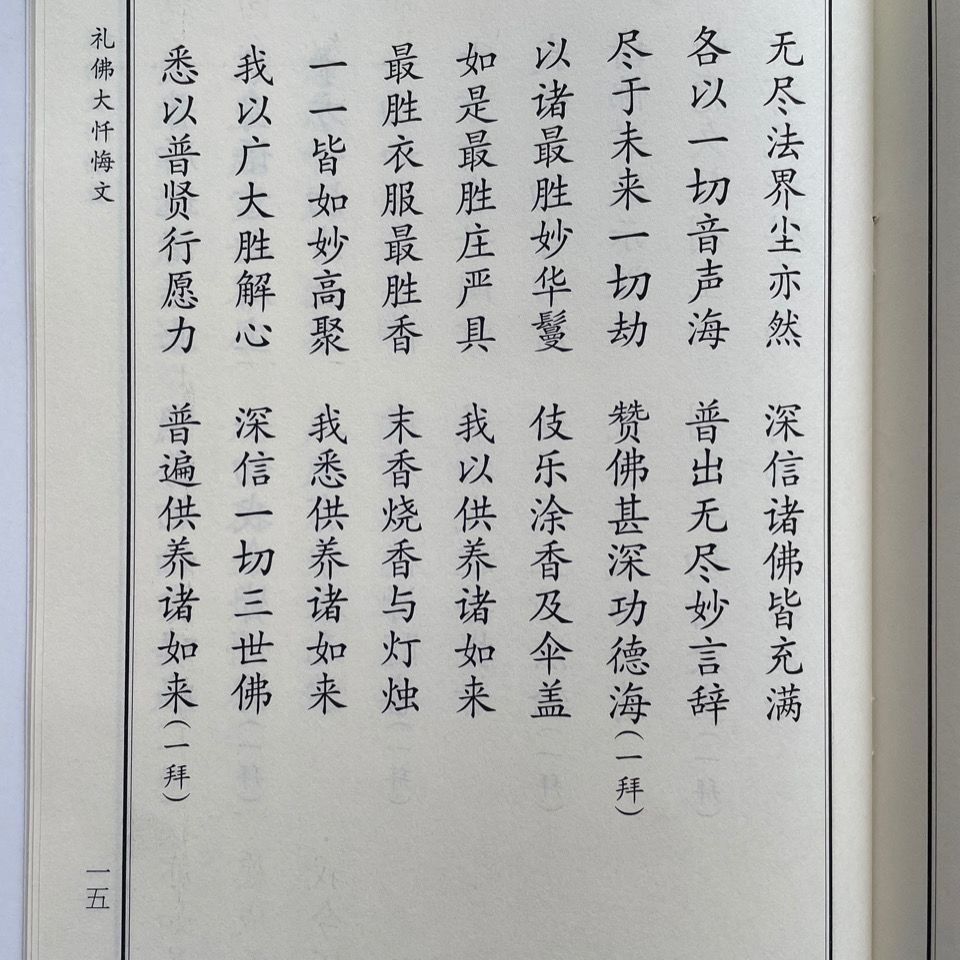 无尽法界尘亦然 深信诸佛皆充满
各以一切音声海 普出无尽妙言辞
尽于未来一切劫 赞佛甚深功德海(一拜)
以诸最胜妙华鬘 伎乐涂香及伞盖
如是最胜庄严具 我以供养诸如来
最胜衣服最胜香 末香烧香与灯烛
一一皆如妙高聚 我悉供养诸如来
我以广大胜解心 深信一切三世佛
悉以普贤行愿力 普遍供养诸如来(一拜)
礼佛大忏悔文
一五